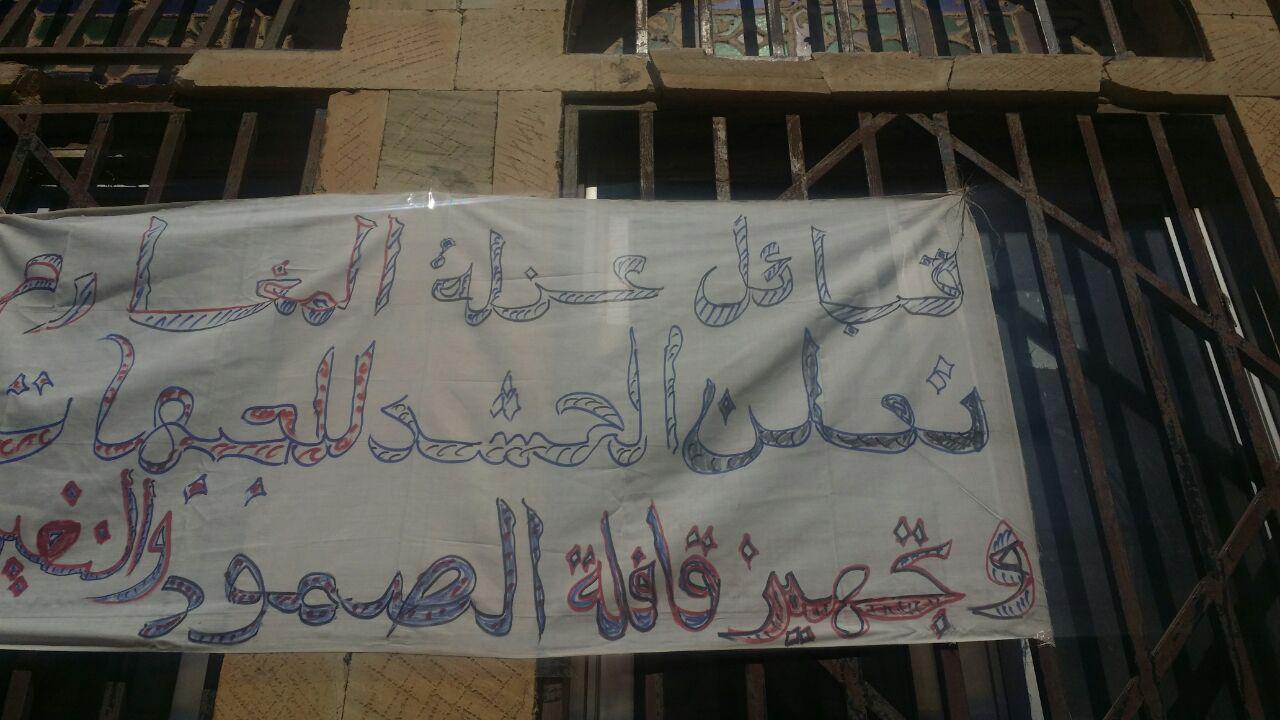 قبائل عزلة
تعلن الحشد للجبهات
وتجهيز قافلة الصمود والنفير